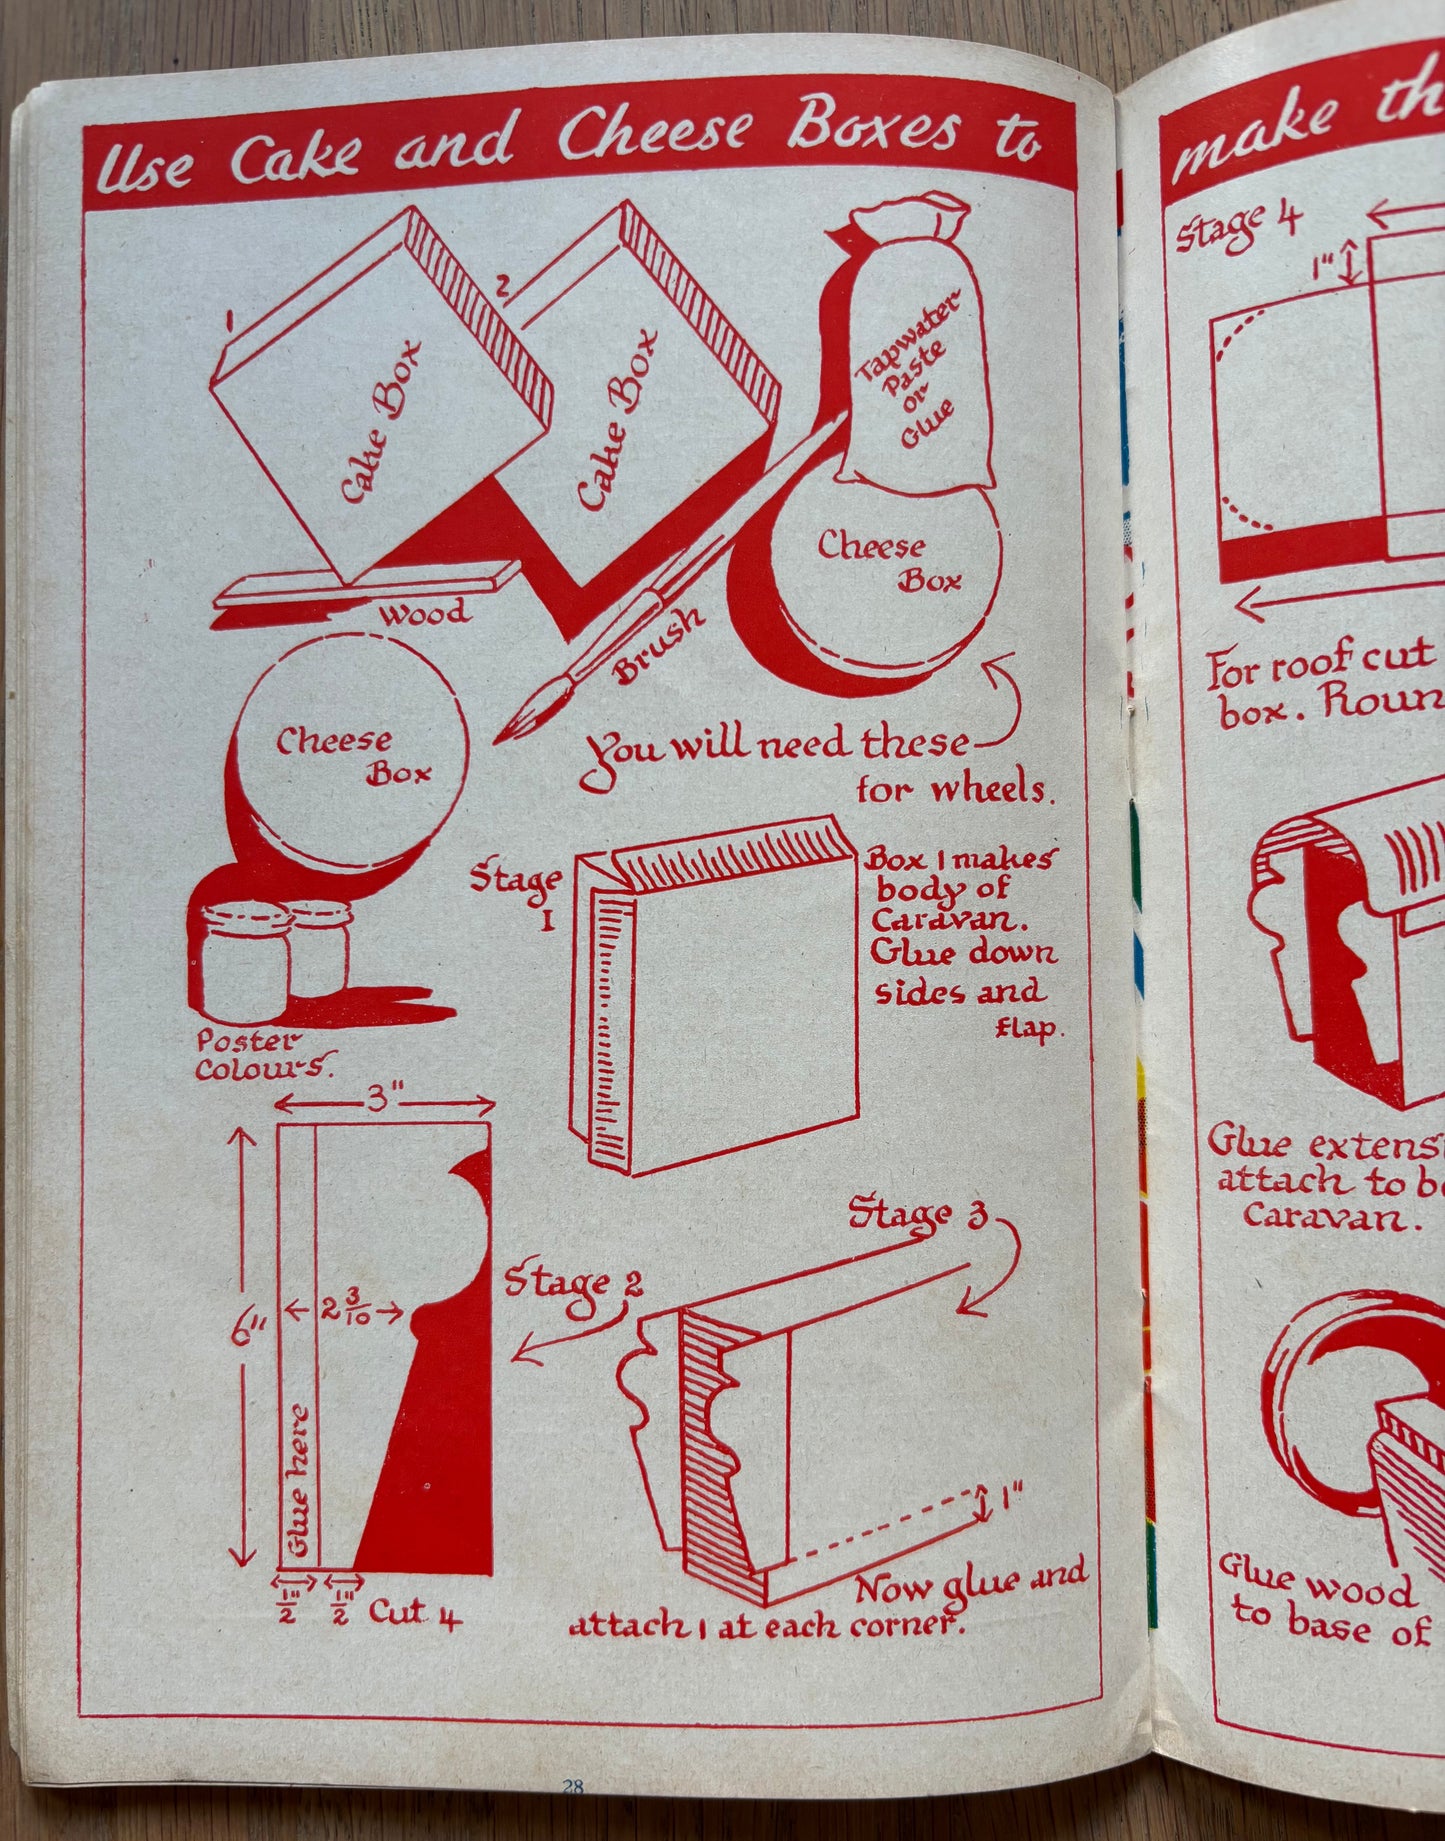 Use Cake and Cheese Boxes to
1
2
Cake Box
Cake Box
Tapwater
Paste
or
Glue
Cheese
Box
Wood
Brush
Cheese
Box
You will need these
for wheels.
Poster
Colours.
Stage
1
Box 1 makes
body of
Caravan.
Glue down
sides and
flap.
3"
6"
2 3/10
Glue here
1/2"
1/2"
Cut 4
Stage 2
Stage 3
1"
Now glue and
attach 1 at each corner.
28
make th
Stage 4
1"
For roof cut
box. Roun
Glue extens
attach to b
Caravan.
Glue wood
to base of